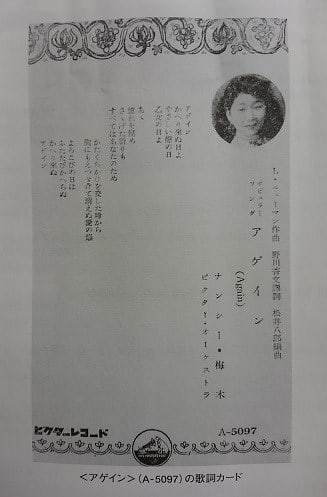 L・ニューマン作曲 野川香文訳詞 松井八郎編曲
ポピュラー
ソング
アゲイン
(Again)
ナンシー・梅木
ビクター・オーケストラ
アゲイン
かへり來ぬ日よ
やさしい僾の日
乙女の日よ
あゝ
憧れを秘め
さゝげた祈りも
すべてはあなたのため
かたくちかひを交した時から
胸にもえつゝ今で消えぬ愛の焔
よろこびの日は
ふたたびかへらぬ
かへり來ぬ
アゲイン
ビクターレコード
A-5097
＜アゲイン＞(A-5097)の歌詞カード